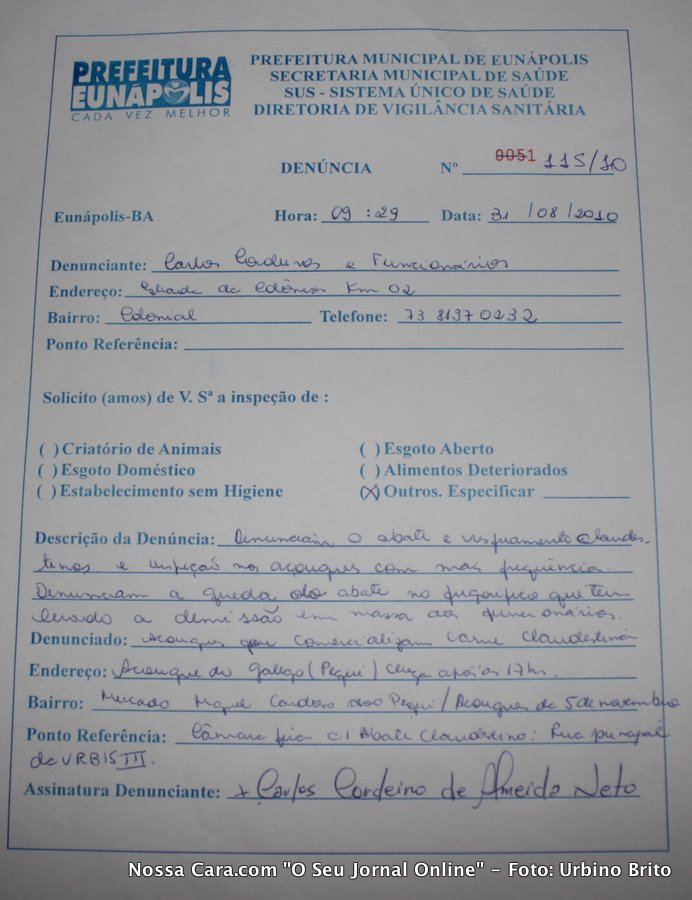 PREFEITURA
EUNÁPOLIS
CADA VEZ MELHOR
PREFEITURA MUNICIPAL DE EUNÁPOLIS
SECRETARIA MUNICIPAL DE SAÚDE
SUS - SISTEMA ÚNICO DE SAÚDE
DIRETORIA DE VIGILÂNCIA SANITÁRIA
DENÚNCIA Nº 0051 115/10
Eunápolis-BA Hora: 09:29 Data: 31/08/2010
Denunciante: Carlos Cordeiro e Funcionários
Endereço: Estrada da Colônia Km 02
Bairro: Colonial Telefone: 73 8137 0232
Ponto Referência:
Solicito (amos) de V. Sª a inspeção de :
( ) Criatório de Animais ( ) Esgoto Aberto
( ) Esgoto Doméstico ( ) Alimentos Deteriorados
( ) Estabelecimento sem Higiene (X) Outros. Especificar
Descrição da Denúncia: Denunciam o abate e clandes-
tinos e inspeção nos açougues com mas frequência.
Denunciam a queda do abate no frigorifico que tem
levado a demissão em massa dos funcionários.
Denunciado: Açougues que comercializam carne clandestina
Endereço: Açougue do galego (Pequi) chega após às 17hs.
Bairro: Mercado Cardoso Pequi / Açougues do 5 de novembro
Ponto Referência: Câmara fria c/ Abate Clandestino: Rua principal
da URBIS III.
Assinatura Denunciante: x Carlos Cordeiro de Almeida Neto
Nossa Cara.com "O Seu Jornal Online" - Foto: Urbino Brito